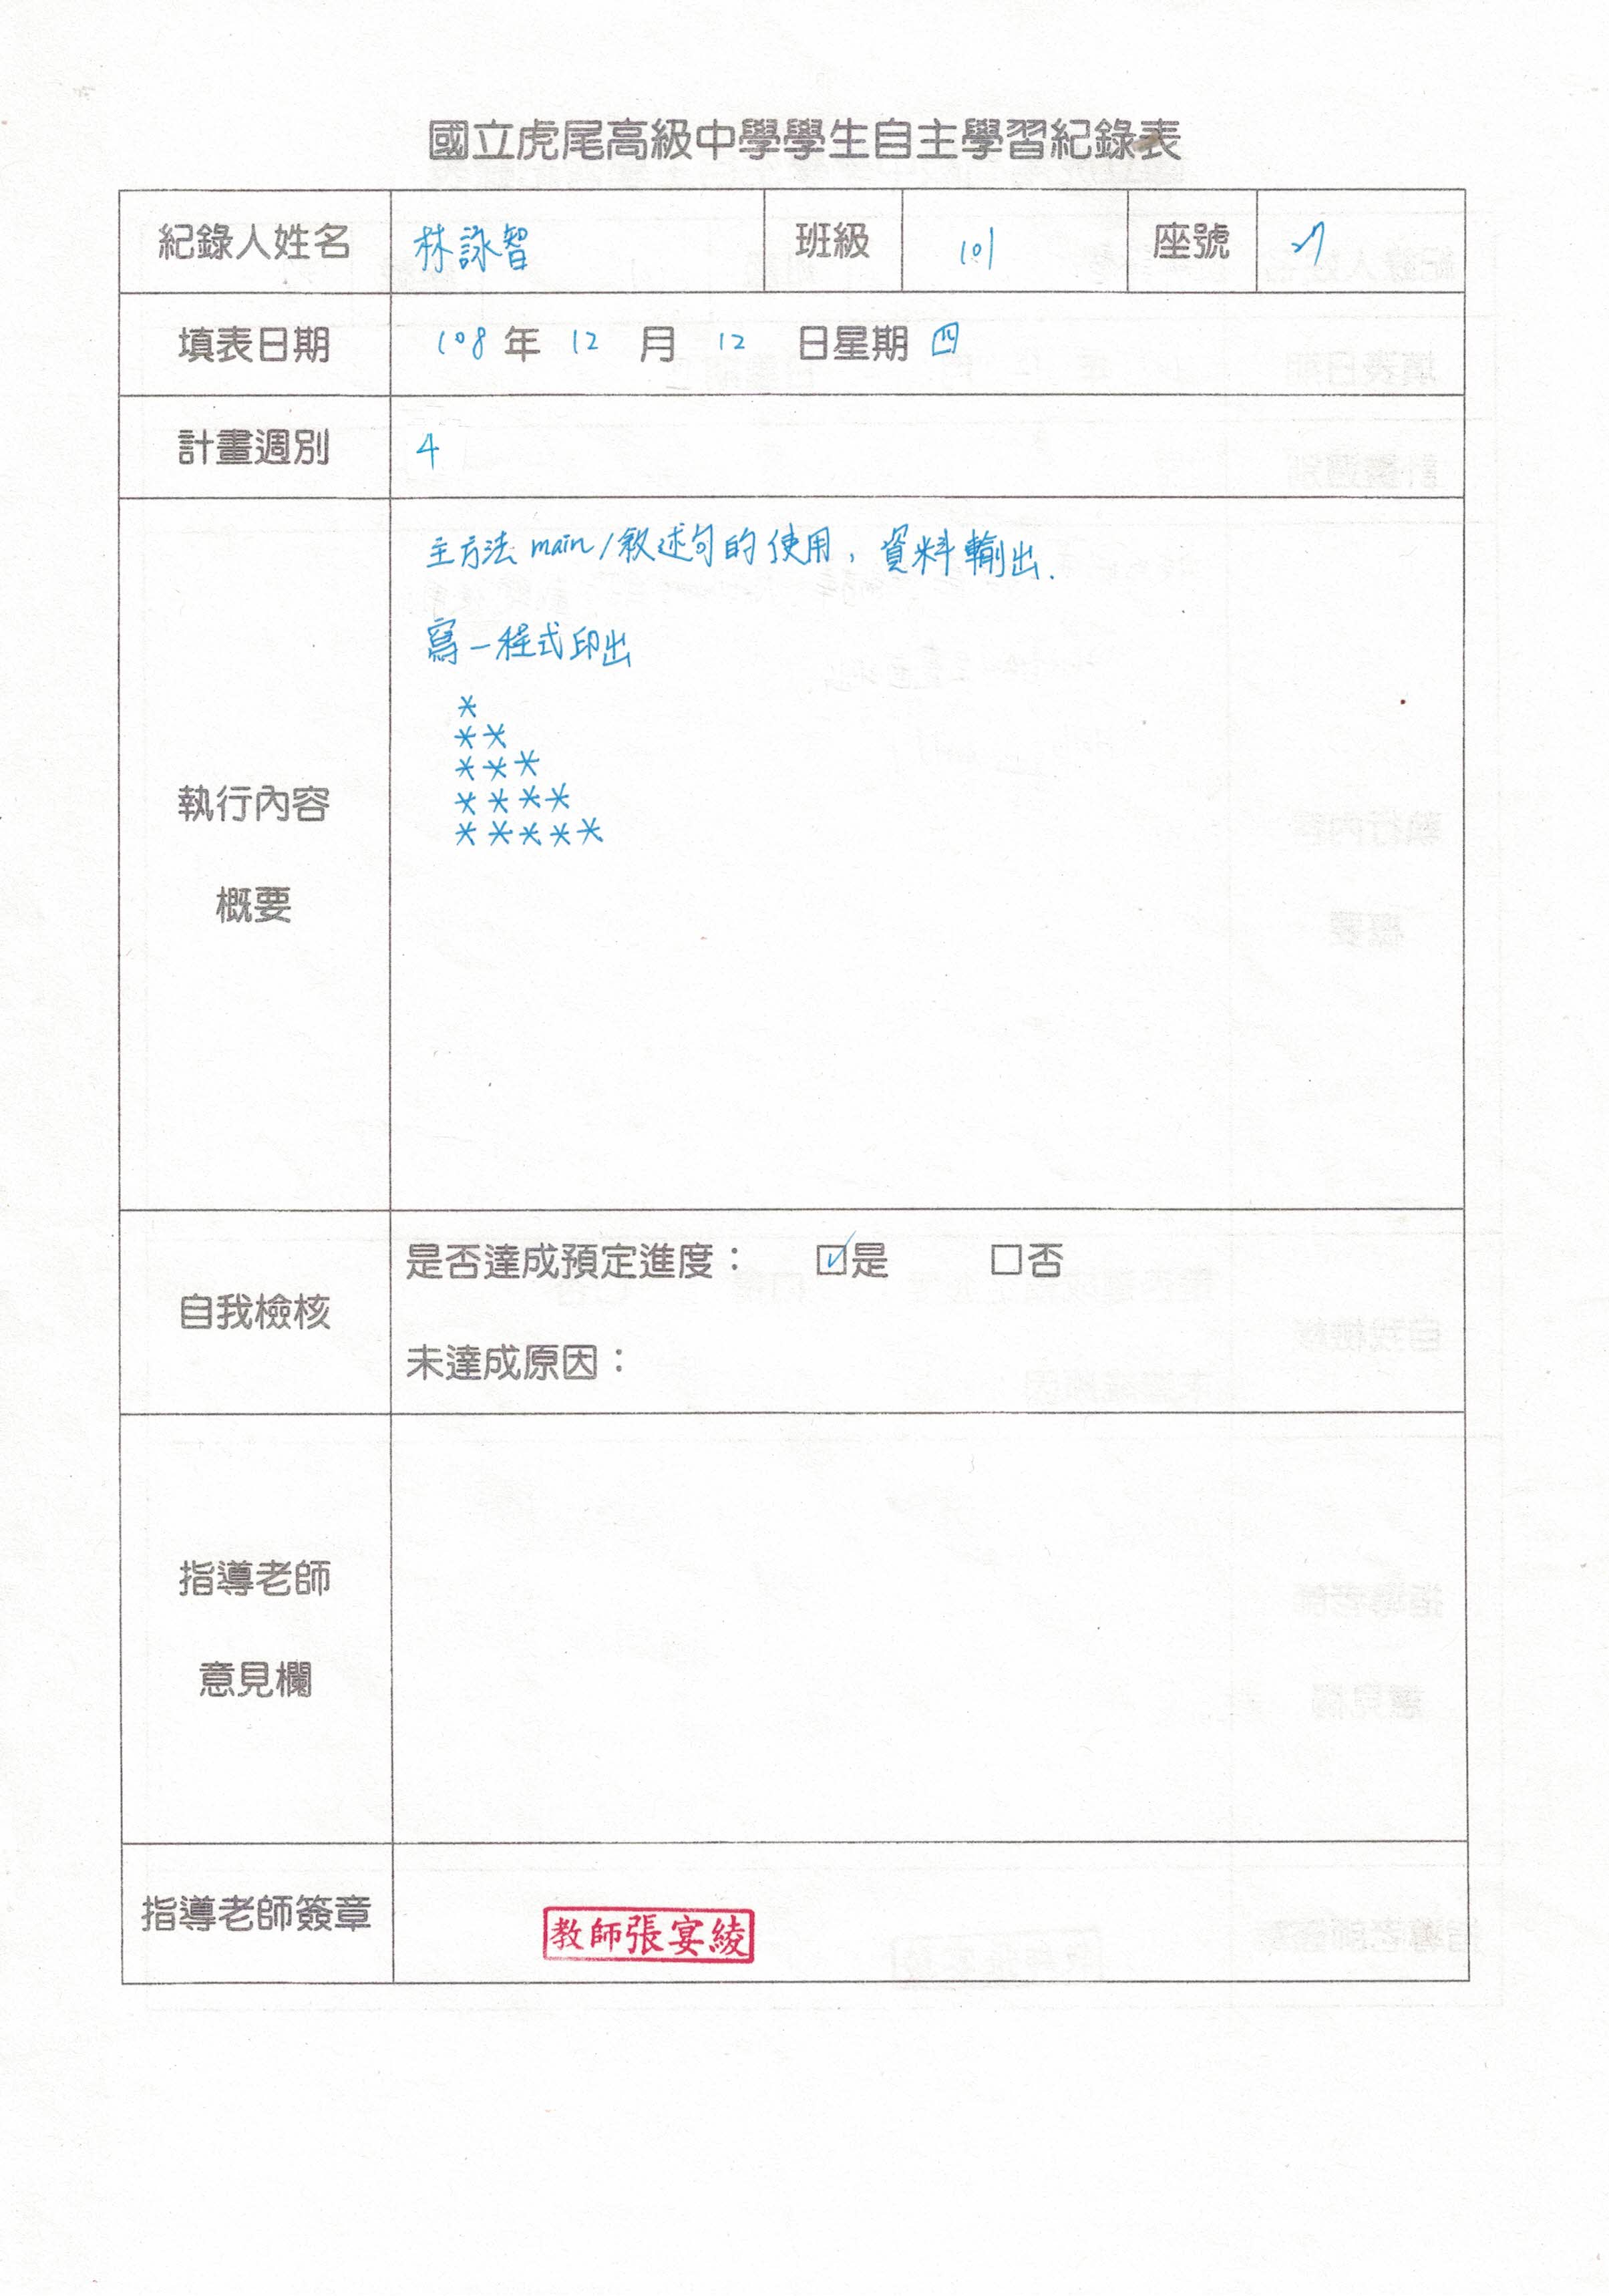 國立虎尾高級中學學生自主學習紀錄表
紀錄人姓名 林詠智 班級 101 座號 27
填表日期 108 年 12 月 12 日星期 四
計畫週別 4
主方法 main/敘述句的使用, 資料輸出.
寫一程式印出
*
**
***
****
*****
執行內容
概要
是否達成預定進度： ☑是 □否
自我檢核
未達成原因：
指導老師
意見欄
指導老師簽章 教師張宴綾